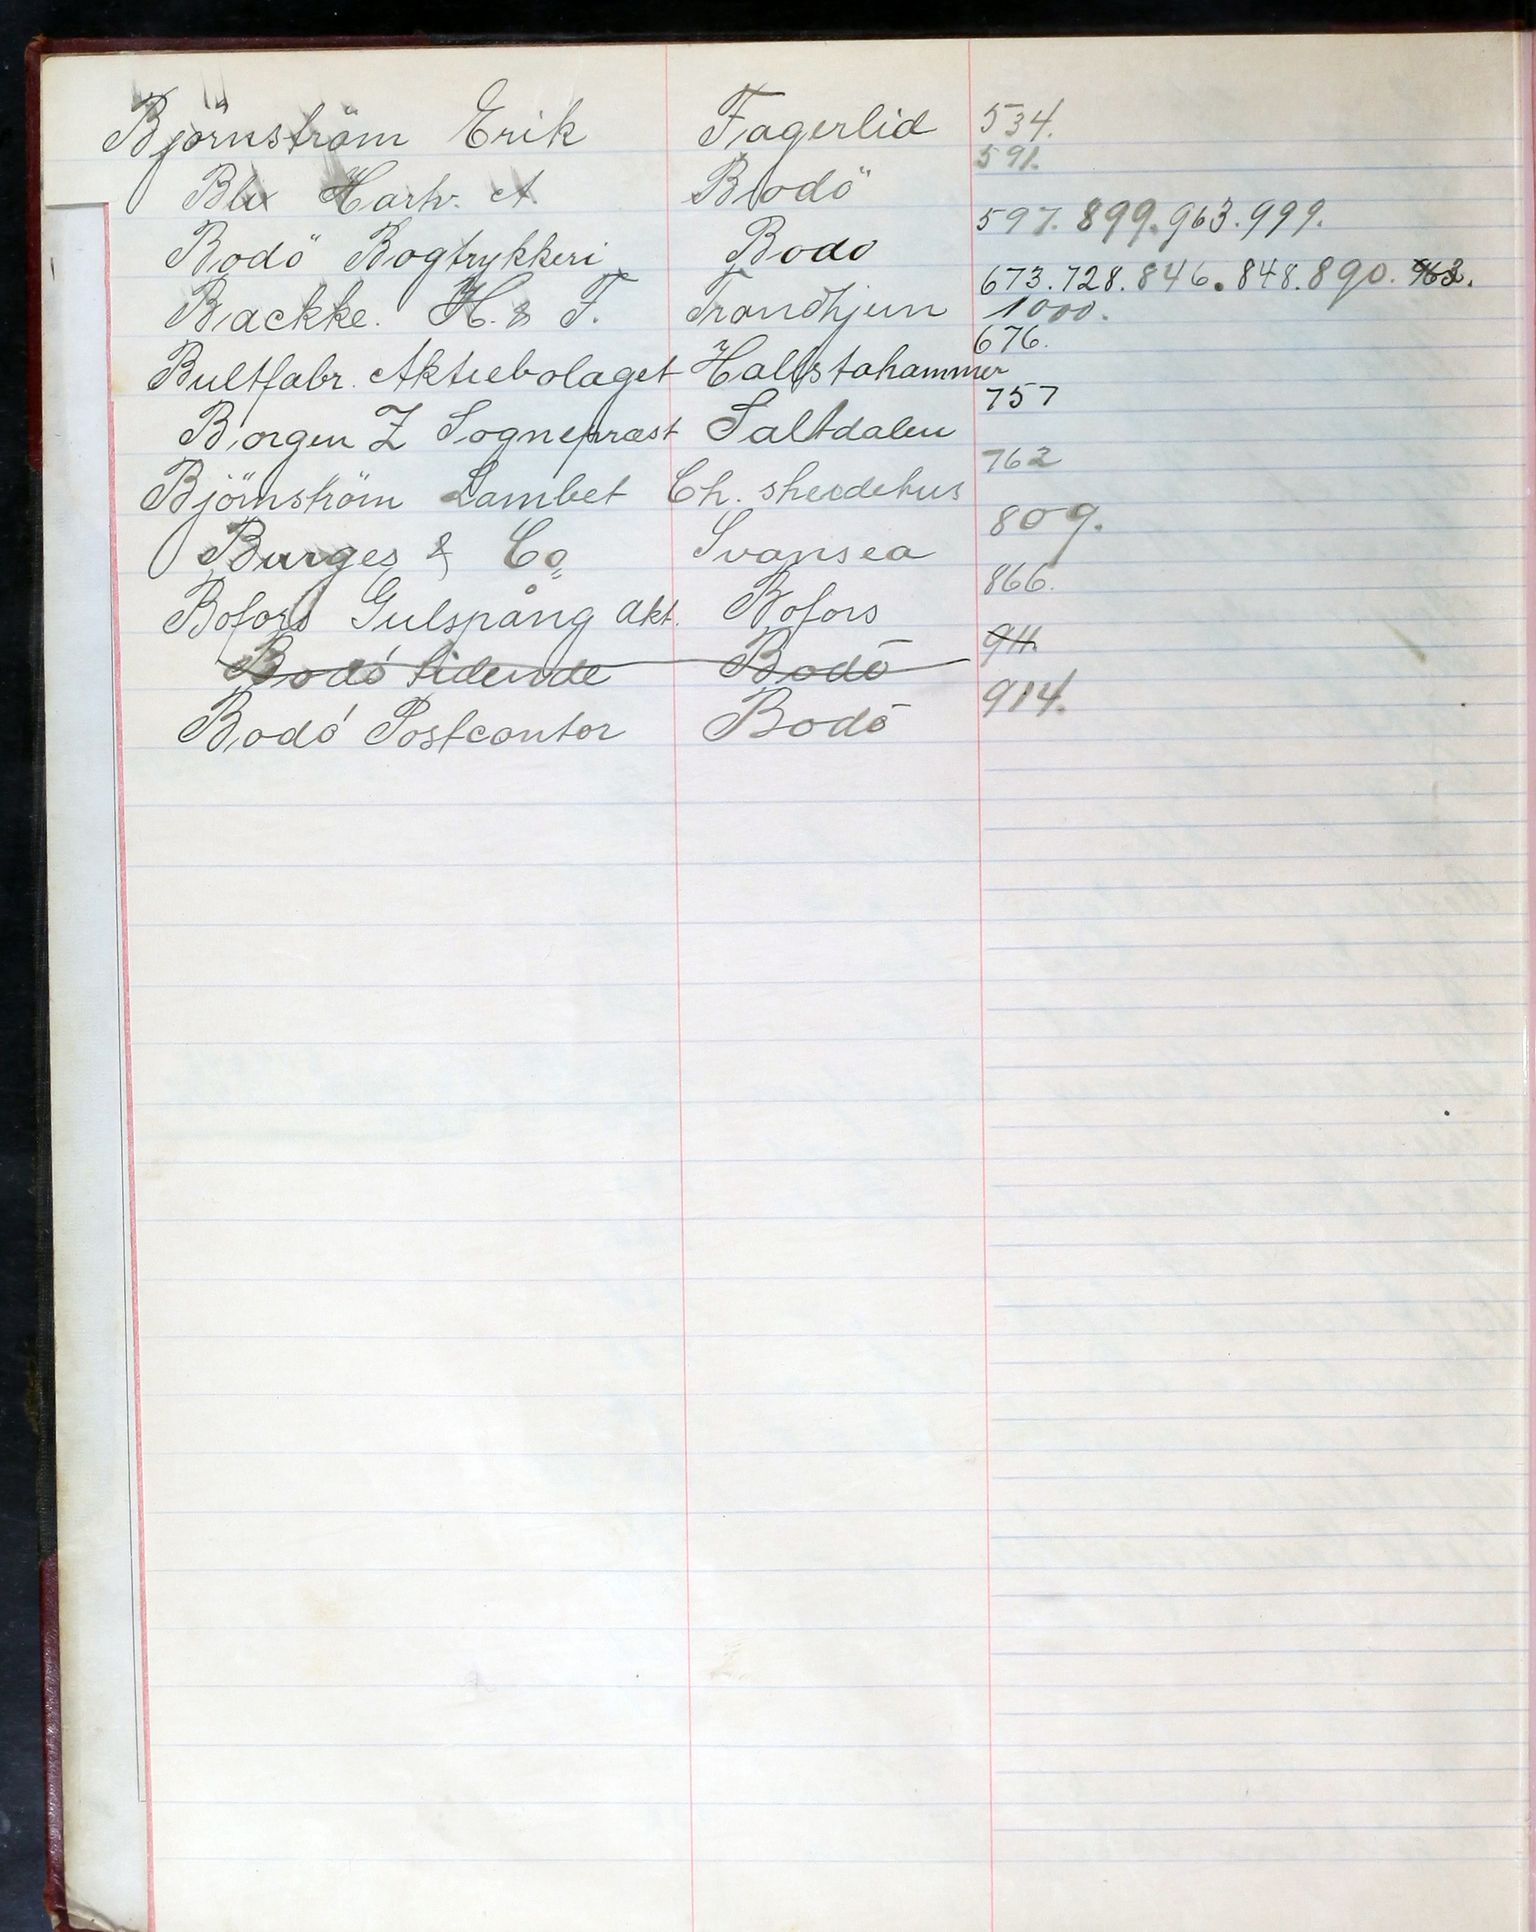 Björnström Erik Fagerlid 534.
Blix Hartv. A Bodö 591.
Bodö Bogtrykkeri Bodö 597. 899. 963. 999.
Backke. H. & F. Trondhjem 673. 728. 846. 848. 890. 963.
1000.
Bultfabr. Aktiebolaget Hallstahammer 676.
Borgen Z Sognepræst Saltdalen 757
Björnström Lambet Ch. 762
Burges & Co Svansea 809.
Bofors Gulspång akt. Bofors 866.
Bodó tidende Bodö 911.
Bodó Postcontor Bodö 914.